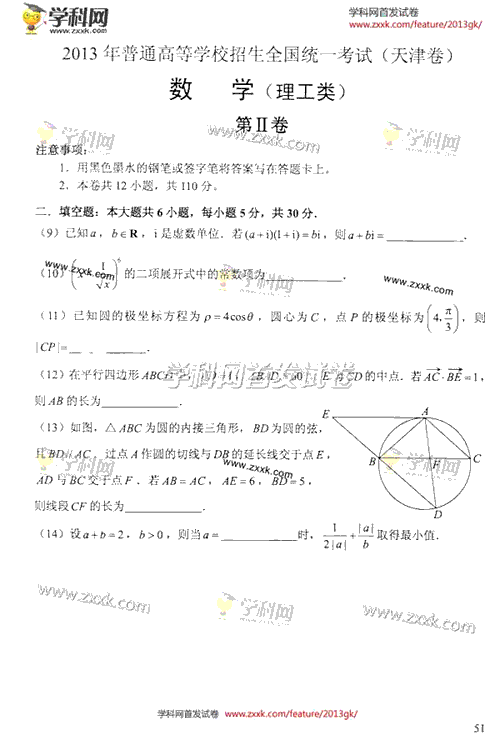 学科网
zxxk.com
学科网首发试卷
www.zxxk.com/feature/2013gk/
2013 年普通高等学校招生全国统一考试（天津卷）
数 学（理工类）
第Ⅱ卷
www.zxxk.com 学科网
www.zxxk.com 学科网
注意事项：
1．用黑色墨水的钢笔或签字笔将答案写在答题卡上。
2．本卷共 12 小题，共 110 分。
二．填空题：本大题共 6 小题，每小题 5 分，共 30 分．
(9) 已知 a，b∈R，i 是虚数单位．若 (a+i)(1+i)=bi，则 a+bi=________．
(10) ( 1/√x )^6 的二项展开式中的常数项为________．
www.zxxk.com
www.zxxk.com
(11) 已知圆的极坐标方程为 ρ=4cosθ，圆心为 C，点 P 的极坐标为 (4, π/3)，则
|CP|=________．
学科网首发试卷
(12) 在平行四边形 ABCD 中， CD 的中点．若 AC·BE=1，
则 AB 的长为________．
(13) 如图，△ABC 为圆的内接三角形，BD 为圆的弦，
且 BD∥AC．过点 A 作圆的切线与 DB 的延长线交于点 E，
AD 与 BC 交于点 F．若 AB=AC，AE=6，BD=5，
则线段 CF 的长为________．
E A B F C D
(14) 设 a+b=2，b>0，则当 a=________时，1/(2|a|)+|a|/b 取得最小值．
www.zxxk.com 学科网
www.zxxk.com 学科网
学科网首发试卷
www.zxxk.com/feature/2013gk/
51